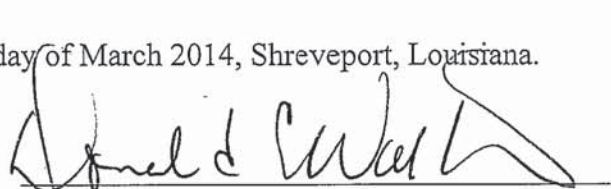 day of March 2014, Shreveport, Louisiana.
Donald E Wal